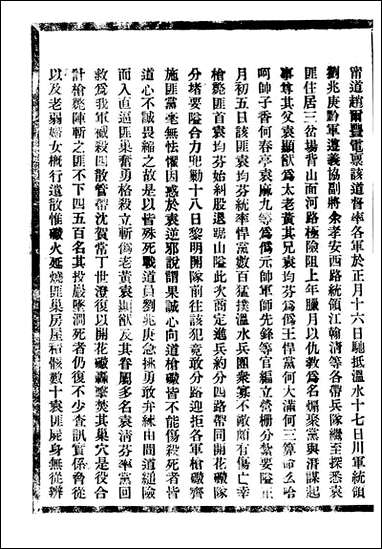 甯道趙爾豐電稟該道督率各軍於正月十六日馳抵溫水十七日川軍統領
劉兆庚黔軍遵義協副將余孝安西路統領江翰清等各帶兵隊繼至探悉袁
匪住居三岔塲背山面河路極險阻上年臘月以仇教爲名煽聚黨與潛謀起
事尊其父袁顯猷爲太老黃其兄袁均芬爲僞王悍黨何大滿何三算命么哈
呵師子香何春亭袁麻九等爲僞元帥軍師先鋒等官編立營柵分紮要隘正
月初五日該匪袁均芬統率悍黨數百猛撲溫水兵團衆寡不敵頗有傷亡幸
槍斃匪首袁均芬始糾股退踞山隘此次商定進兵約分四路帶同開花礮隊
分堵要隘合力兜勦十八日黎明開隊前往該犯竟敢分路迎拒各軍槍礮齊
施匪黨毫無怯懼因惑於袁逆邪說謂果誠心向道槍礮皆不能傷殺死者皆
道心不誠畏縮之故是以皆殊死戰道員劉兆庚急挑勇敢弁練由間道縋險
而入直逼匪巢奮勇格殺立斬僞老黃袁顯猷及其眷屬多名袁清芬率黨回
救爲我軍截殺四散管帶沈賀常丁世澄復以開花礮轟擊焚其巢穴是役合
計槍斃陣斬之匪不下四五百名其投巖墜澗死者仍復不少查訊實係脅從
以及老弱婦女概行遣散惟礮火延燒匪巢房屋棺骸數十袁匪屍身無從辨